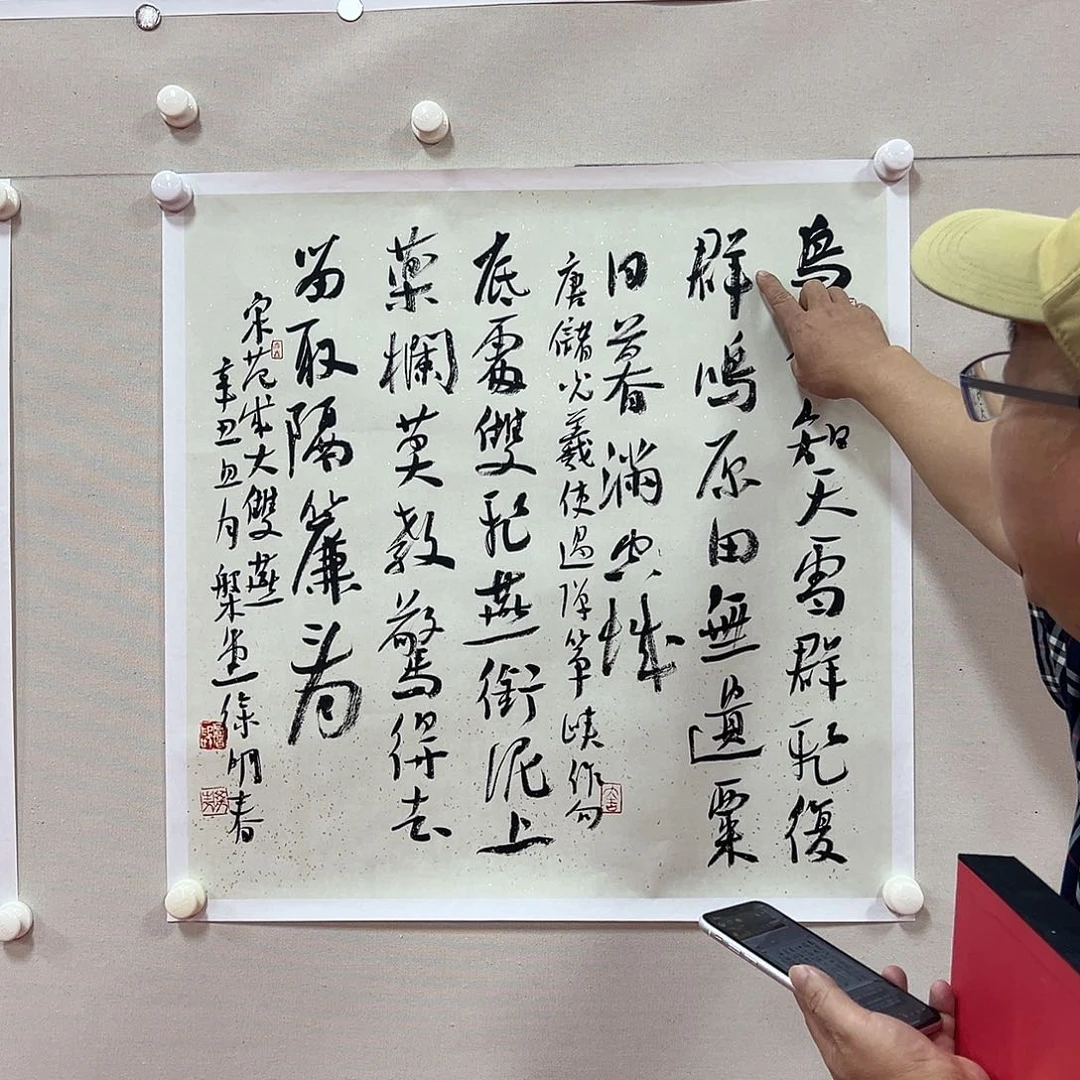 鳥知天雪群飛復
群鳴原田無遺粟
日暮滿空城
唐儲光羲使過彈箏峽作句
底處雙飛燕銜泥上
藥欄莫教驚得去
留取隔簾看
宋范成大雙燕
辛丑且月槃徐明春
大吉